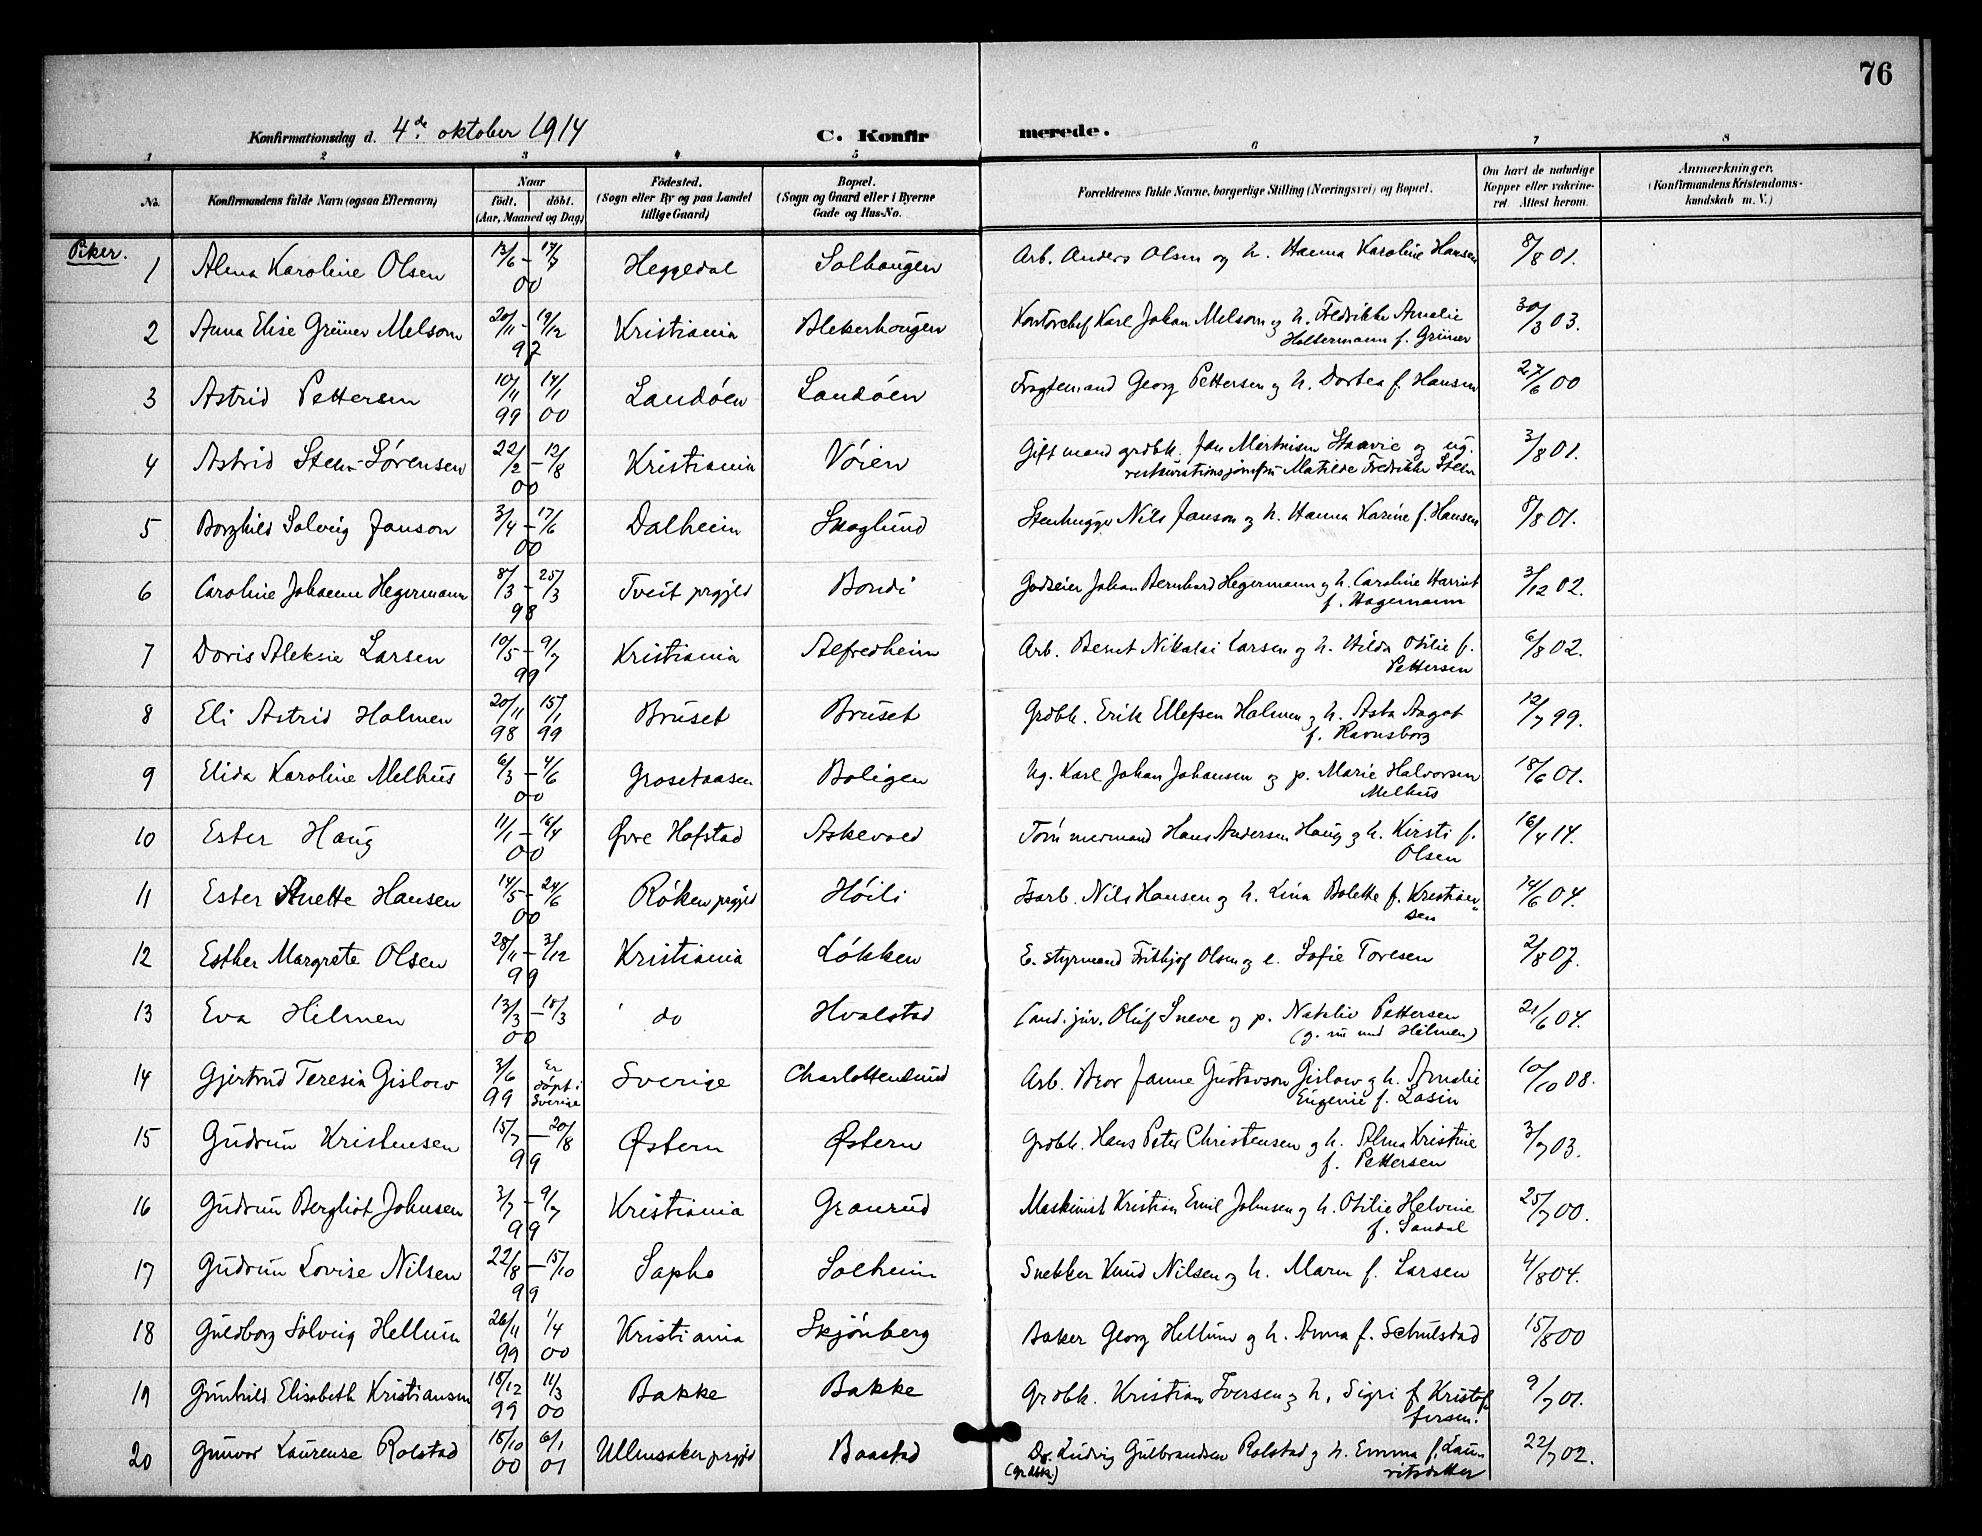 76
Konfirmationsdag d. 4de oktober 1914 C. Konfirmerede.
1 2 3 4 5 6 7 8
No. Konfirmandens fulde Navn (ogsaa Efternavn) Naar født. døbt. (Aar, Maaned og Dag) Fødested. (Sogn eller By og paa Landet tillige Gaard) Bopæl. (Sogn og Gaard eller i Byerne Gade og Hus-No. Forældrenes fulde Navne, borgerlige Stilling (Næringsvei) og Bopæl. Om havt de naturlige Kopper eller vakcineret. Attest herom. Anmærkninger. (Konfirmandens Kristendomskundskab m. V.)
Piker.
1 Alma Karoline Olsen 13/6 – 17/7 00 Heggedal Solhaugen Arb. Anders Olsen og h. Hanna Karoline Hansen 8/8 01.
2 Anna Elise Grüner Melsom 20/11 - 19/12 97 Kristiania Blekerhaugen Kontorchef Karl Johan Melsom og h. Fredrikke Amalie Holtermann f. Grüner 30/3 03.
3 Astrid Pettersen 10/11 99 14/1 00 Landøen Landøen Fragtemand Georg Pettersen og h. Dortea f. Hansen 27/6 00
4 Astrid Steen-Sørensen 22/2 – 12/8 00 Kristiania Vøien Gift mand grdbk. Jan Martinsen Staavie og ug. restaurationsjomfru Matilde Fredrikke Steen 3/8 01.
5 Borghild Solveig Janson 3/4 – 17/6 00 Dalheim Skoglund Stenhugger Nils Janson og h. Hanna Karine f. Hansen 8/8 01.
6 Caroline Johanne Hegermann 8/3 – 25/3 98 Tveit prgjld Bondi Godseier Johan Bernhard Hegermann og h. Caroline Harriet f. Hagemann 3/12 02.
7 Doris Aleksie Larsen 10/5 – 9/7 99 Kristiania Alfredheim Arb. Bernt Nikolai Larsen og h. Hilda Otilie f. Pettersen 6/8 02.
8 Eli Astrid Holmen 20/11 98 15/1 99 Bruset Bruset Grdbk. Erik Ellefsen Holmen og h. Asta Aagot f. Ravnsborg 12/7 99.
9 Elida Karoline Melhus 6/3 – 4/6 00 Grosetaasen Boligen Ug. Karl Johan Johansen og p. Marie Halvorsen Melhus 18/6 01.
10 Ester Haug 11/1 – 16/4 00 Øvre Hofstad Askevold Tømmermand Hans Andersen Haug og h. Kirsti f. Olsen 16/4 14.
11 Ester Anette Hansen 14/5 – 24/6 00 Røken prgjld Høili Fsarb. Nils Hansen og h. Lina Bolette f. Kristiansen 14/6 04.
12 Esther Margrete Olsen 28/11 – 3/12 99 Kristiania Løkken E. styrmand Frithjof Olsen og e. Sofie Toresen 2/8 07.
13 Eva Hilmen 13/3 – 18/3 00 do Hvalstad Cand. jur. Oluf Sneve og p. Natalie Pettersen (g. nu med Hilmen) 21/6 04.
14 Gjertrud Teresia Gislow 3/6 99 Er døpt i Sverige Sverige Charlottenlund Arb. Bror Janne Gustavson Gislow og h. Amalie Eugenie f. Lasin 10/10 08.
15 Gudrun Kristensen 15/7 – 20/8 99 Østern Østern Grdbk. Hans Peter Christensen og h. Alma Kristine f. Pettersen 3/7 03.
16 Gudrun Bergliot Johnsen 3/7 – 9/7 99 Kristiania Granrud Maskinist Kristian Emil Johnsen og h. Otilie Helvine f. Sandal 25/7 00.
17 Gudrun Lovise Nilsen 22/8 – 15/10 99 Sapho Solheim Snekker Knud Nilsen og h. Maren f. Larsen 4/8 04.
18 Guldborg Solveig Hellum 26/11 99 1/4 00 Kristiania Skjønberg Baker Georg Hellum og h. Anna f. Schulstad 15/8 00
19 Gunhild Elisabeth Kristiansen 18/12 99 11/3 00 Bakke Bakke Grdbk. Kristian Iversen og h. Sigri f. Kristoffersen. 9/7 01.
20 Gunvor Laurense Rolstad 18/10 00 6/1 01 Ullensaker prgjld Baastad Dr. Ludvig Gulbrandsen Rolstad og h. Emma f. Lauritsdatter (grdbk.) 22/7 02.